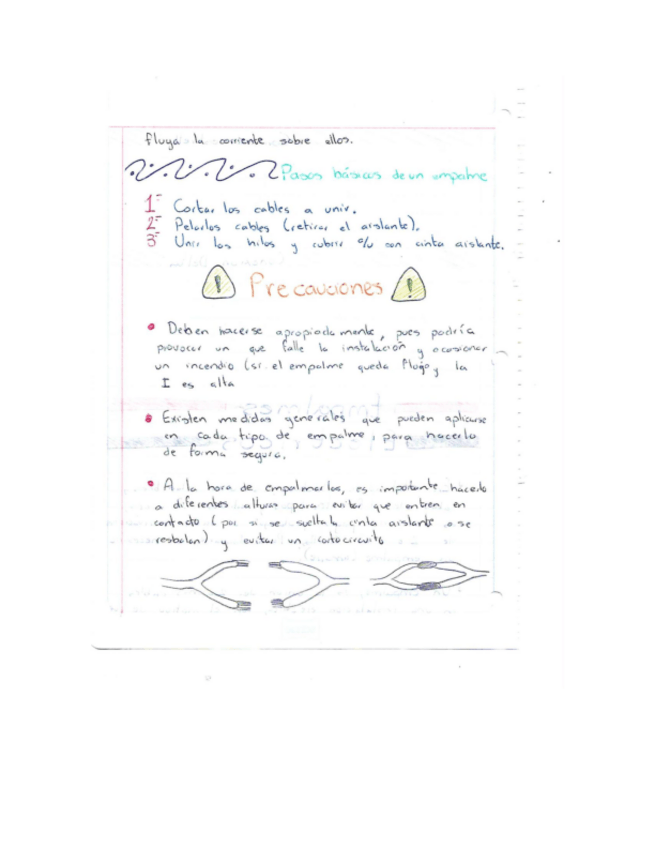 fluya la corriente sobre ellos.
Pasos básicos de un empalme
1- Cortar los cables a unir.
2- Pelarlos cables (retirar el aislante).
3- Unir los hilos y cubrir c/u con cinta aislante.
Precauciones
• Deben hacerse apropiadamente, pues podría
provocar un que falle la instalación y ocasionar
un incendio (si el empalme queda flojo y la
I es alta
• Existen medidas generales que pueden aplicarse
en cada tipo de empalme, para hacerlo
de forma segura.
• A la hora de empalmarlos, es importante hacerlo
a diferentes alturas para evitar que entren en
contacto (por si se suelta la cinta aislante o se
resbalan) y evitar un cortocircuito